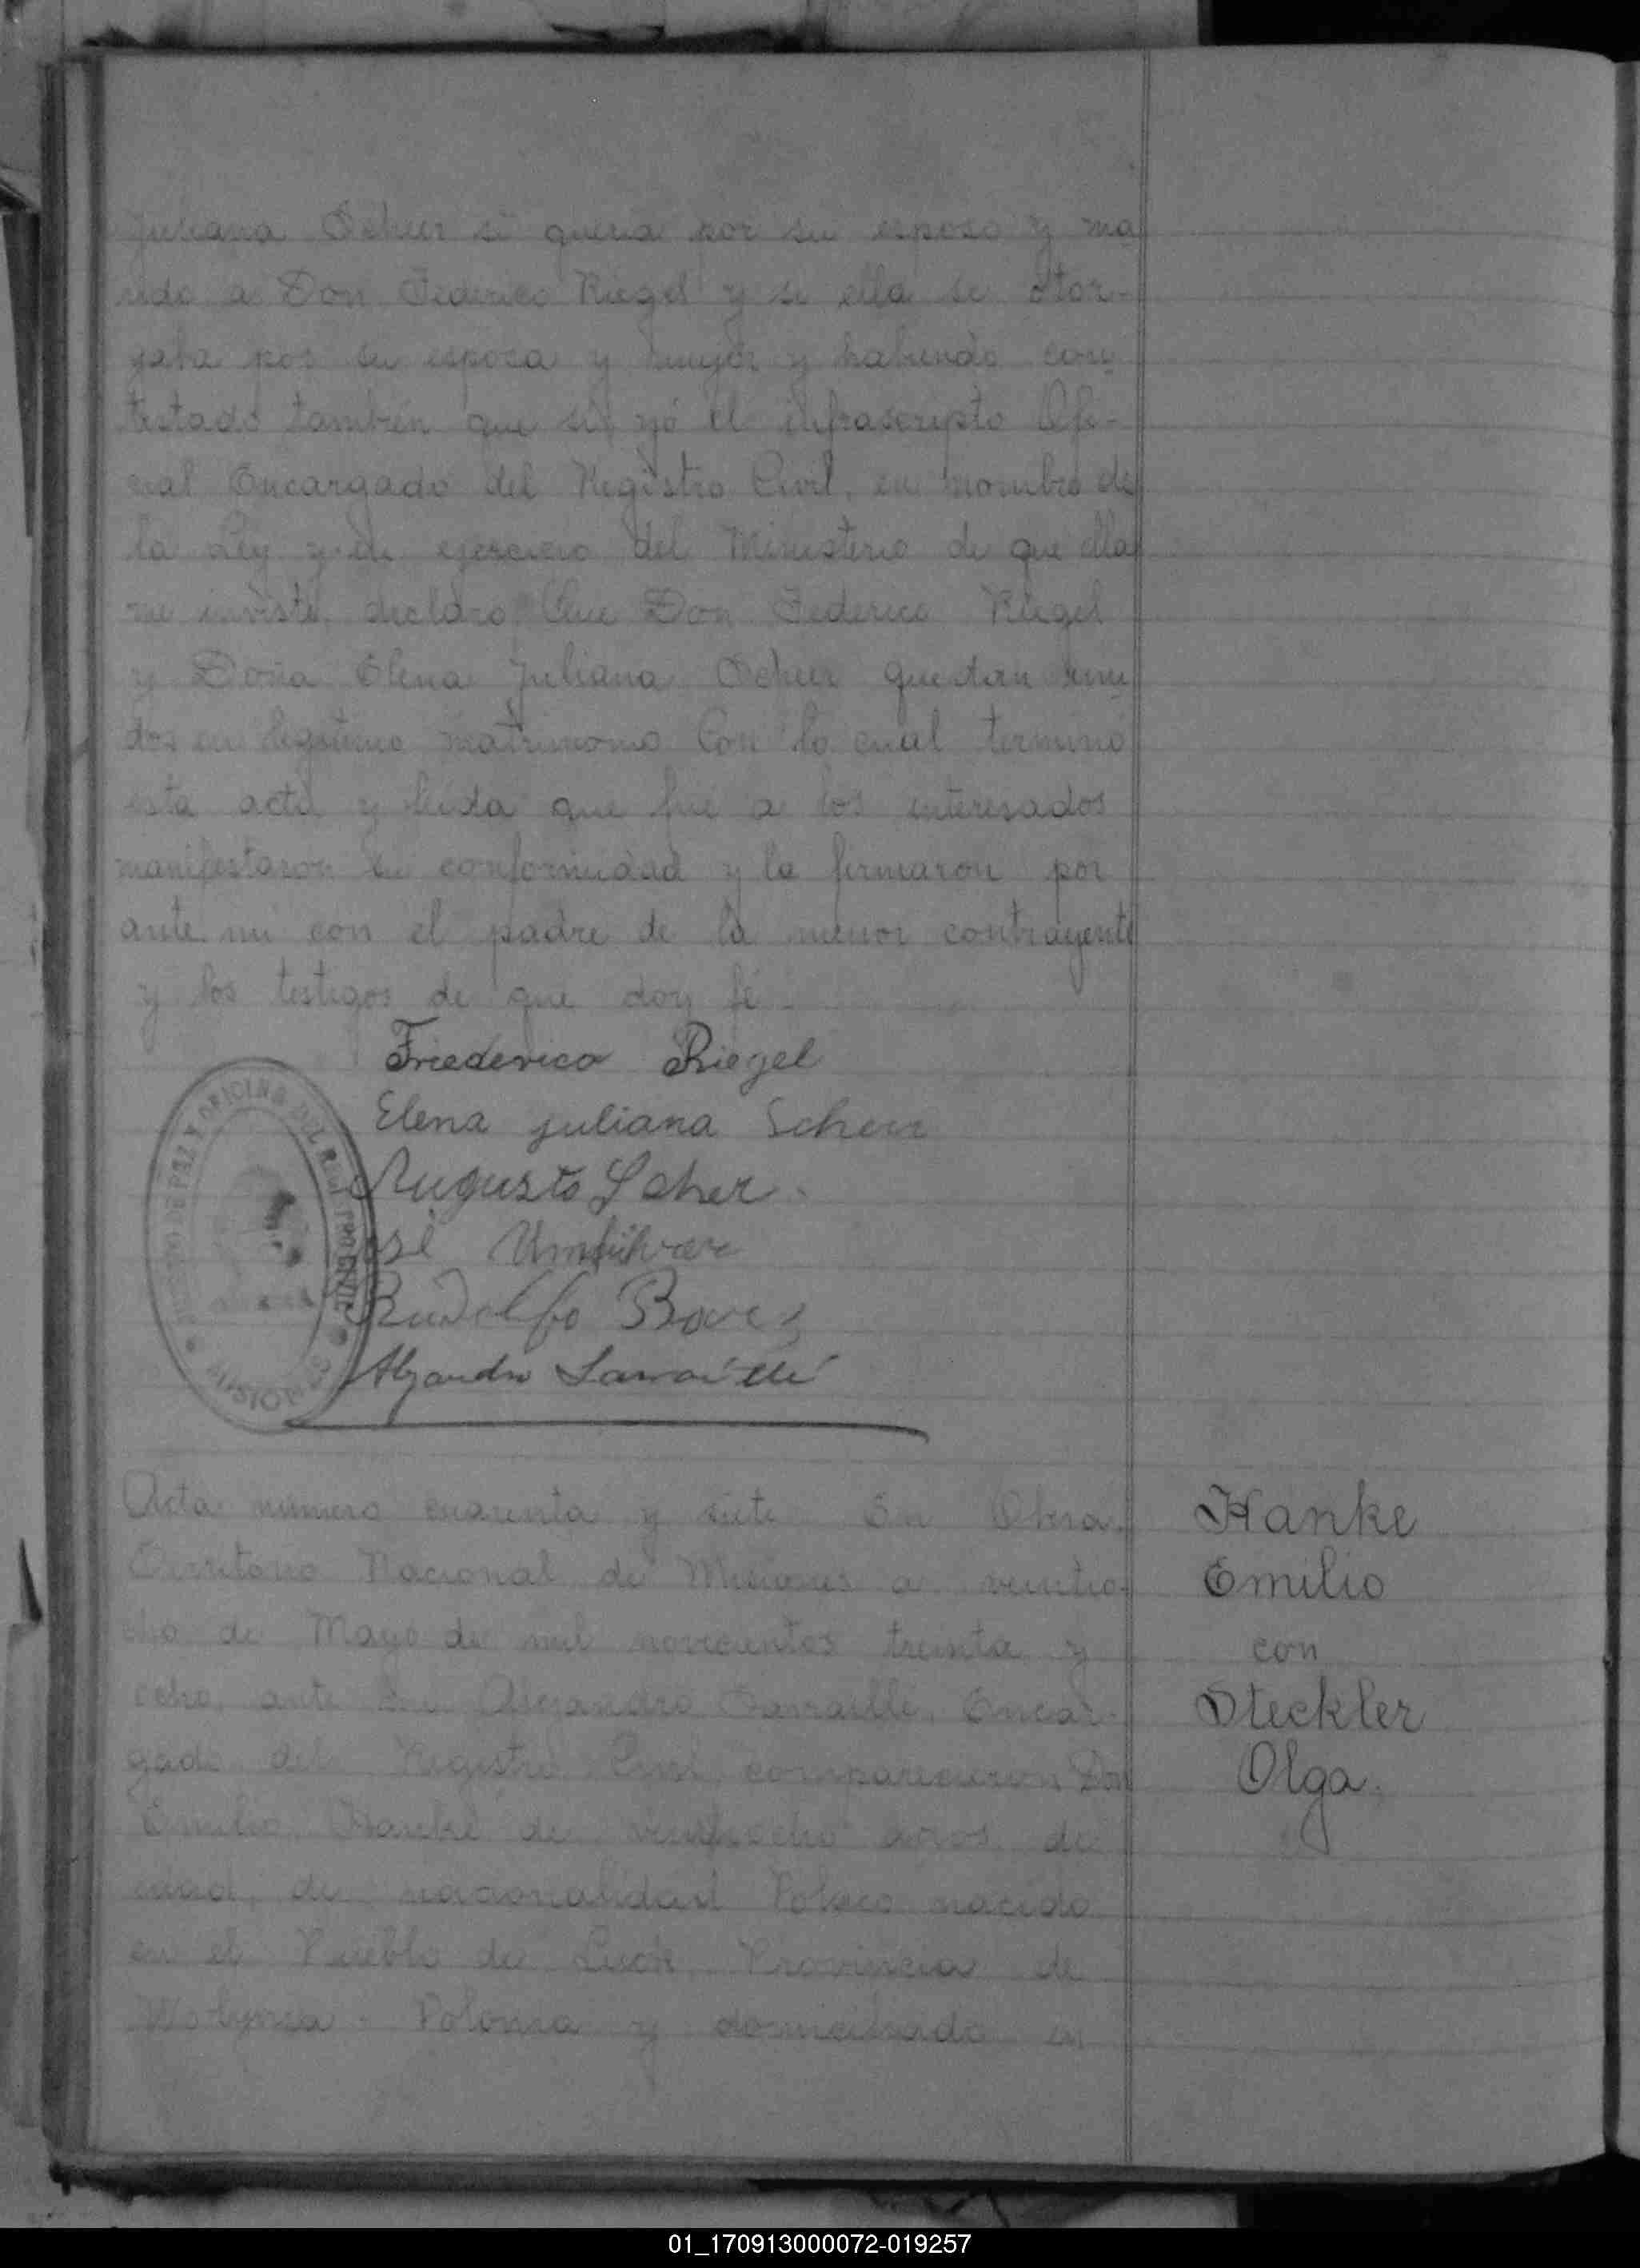 Juliana Scheer si queria por su esposo y ma
rido a Don Federico Riegel y si ella se otor-
gaba por su esposa y mujer y habiendo con-
testado tambien que si, yó el infrascripto Ofi-
cial Encargado del Registro Civil, en nombre de
la Ley y en ejercicio del Ministerio de que ella
me inviste, declaro Que Don Federico Riegel
y Doña Elena Juliana Scheer quedan uni
dos en legitimo matrimonio Con lo cual terminó
esta acta y leida que fué a los interesados
manifestaron su conformidad y la firmaron por
ante mi con el padre de la menor contrayente
y los testigos de que doy fé
Friederico Riegel
Elena juliana Scheer
Augusto Scher
José
Rudolfo
Alejandro Larraillé
Acta número cuarenta y siete En Obera
Territorio Nacional de Misiones a veintio-
cho de Mayo de mil novecientos treinta y
ocho, ante mi Alejandro Larraillé, Encar-
gado del Registro Civil, comparecieron Don
Emilio Hanke de veintiocho años de
edad, de nacionalidad Polaco nacido
en el Pueblo de Luck Provincia de
Wolynia - Polonia y domiciliado en
Hanke
Emilio
con
Steckler
Olga.
01_170913000072-019257